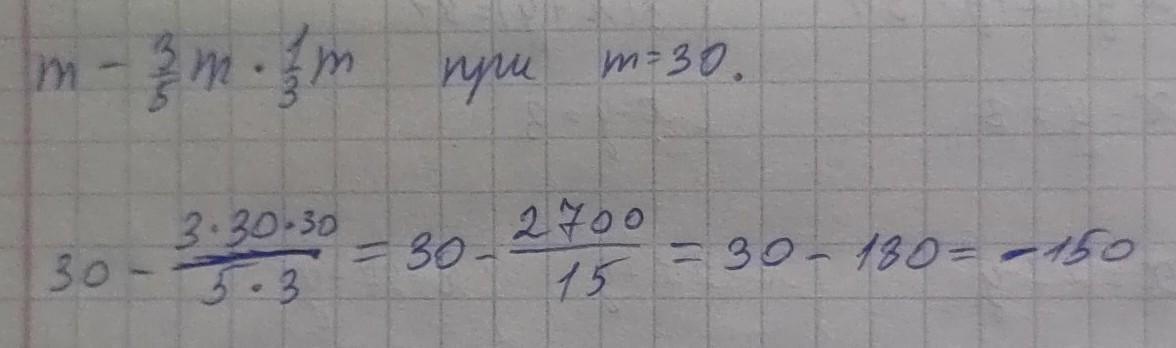 m - 3/5 m · 1/3 m при m = 30.
30 - 3·30·30 / 5·3 = 30 - 2700/15 = 30 - 180 = -150